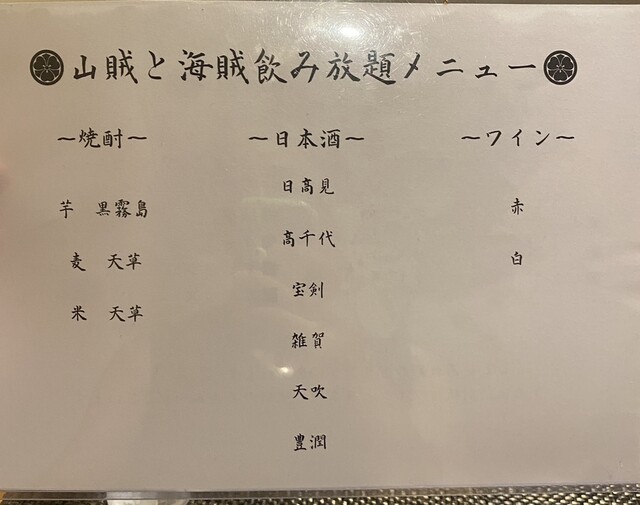 山賊と海賊飲み放題メニュー
～焼酎～
芋 黒霧島
麦 天草
米 天草
～日本酒～
日高見
高千代
宝剣
雑賀
天吹
豊潤
～ワイン～
赤
白